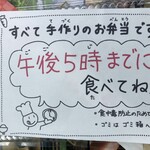 すべて手作りのお弁当です
午後5時までに
食べてね
※食中毒防止のため
※ゴミはゴミ箱へ